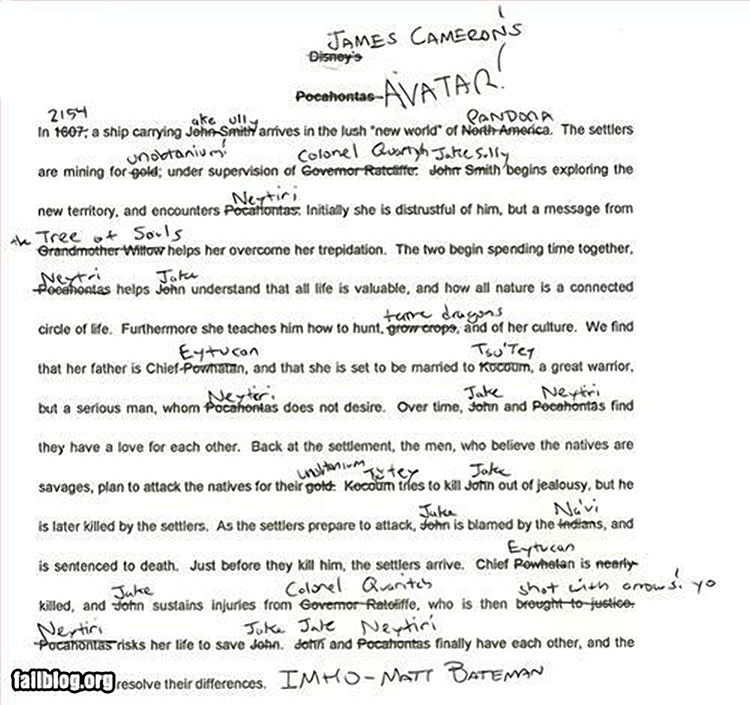 JAMES CAMERON'S
Disney's
Pocahontas AVATAR!
2154 ake ully PANDORA
In 1607, a ship carrying John Smith arrives in the lush "new world" of North America. The settlers
unobtanium! Colonel Quartyh Jake Sully
are mining for gold; under supervision of Governor Ratcliffe. John Smith begins exploring the
Neytiri
new territory, and encounters Pocahontas. Initially she is distrustful of him, but a message from
the Tree of Souls
Grandmother Willow helps her overcome her trepidation. The two begin spending time together,
Neytri Jake
Pocahontas helps John understand that all life is valuable, and how all nature is a connected
tame dragons
circle of life. Furthermore she teaches him how to hunt, grow crops, and of her culture. We find
Eytucan Tsu'Tey
that her father is Chief Powhatan, and that she is set to be married to Kocoum, a great warrior,
Neyteri Jake Neytiri
but a serious man, whom Pocahontas does not desire. Over time, John and Pocahontas find
they have a love for each other. Back at the settlement, the men, who believe the natives are
unobtanium Tsytey Jake
savages, plan to attack the natives for their gold. Kocoum tries to kill John out of jealousy, but he
Jake Na'vi
is later killed by the settlers. As the settlers prepare to attack, John is blamed by the Indians, and
Eytucan
is sentenced to death. Just before they kill him, the settlers arrive. Chief Powhatan is nearly
Jake Colonel Quaritch shot with arrows! yo
killed, and John sustains injuries from Governor Ratcliffe, who is then brought to justice.
Neytiri Jake Jake Neytiri
Pocahontas risks her life to save John. John and Pocahontas finally have each other, and the
failblog.org resolve their differences. IMHO-MATT BATEMAN